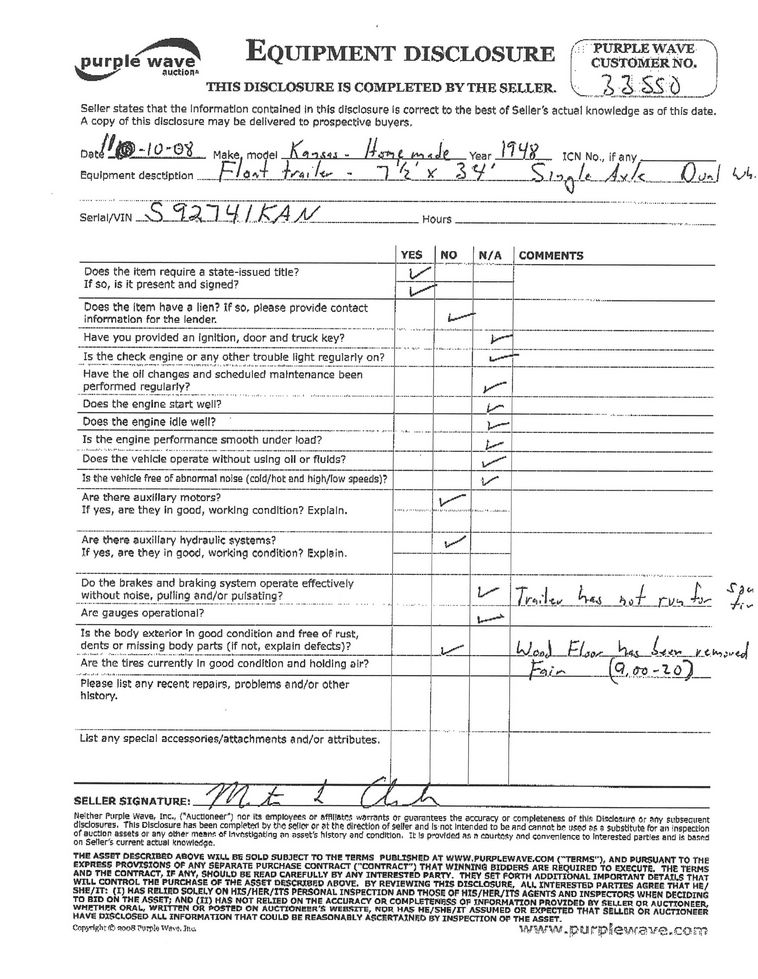 purple wave
auction®
EQUIPMENT DISCLOSURE
PURPLE WAVE
CUSTOMER NO.
33550
THIS DISCLOSURE IS COMPLETED BY THE SELLER.
Seller states that the information contained in this disclosure is correct to the best of Seller's actual knowledge as of this date.
A copy of this disclosure may be delivered to prospective buyers.
Date 11-10-08 Make, model Kansas - Homemade Year 1948 ICN No., if any
Equipment desctiption Float trailer - 7 1/2' x 34' Single Axle Dual Wh.
Serial/VIN S92741KAN Hours
YES NO N/A COMMENTS
Does the item require a state-issued title? ✓
If so, is it present and signed? ✓
Does the item have a lien? If so, please provide contact
information for the lender. ✓
Have you provided an ignition, door and truck key? ✓
Is the check engine or any other trouble light regularly on? ✓
Have the oil changes and scheduled maintenance been
performed regularly? ✓
Does the engine start well? ✓
Does the engine idle well? ✓
Is the engine performance smooth under load? ✓
Does the vehicle operate without using oil or fluids? ✓
Is the vehicle free of abnormal noise (cold/hot and high/low speeds)? ✓
Are there auxiliary motors? ✓
If yes, are they in good, working condition? Explain.
Are there auxiliary hydraulic systems? ✓
If yes, are they in good, working condition? Explain.
Do the brakes and braking system operate effectively
without noise, pulling and/or pulsating? ✓ Trailer has not run for
Are gauges operational? ✓
Is the body exterior in good condition and free of rust,
dents or missing body parts (if not, explain defects)? ✓ Wood Floor has been removed
Are the tires currently in good condition and holding air? Fair (9.00-20)
Please list any recent repairs, problems and/or other
history.
List any special accessories/attachments and/or attributes.
SELLER SIGNATURE:
Neither Purple Wave, Inc., ("Auctioneer") nor its employees or affiliates warrants or guarantees the accuracy or completeness of this Disclosure or any subsequent
disclosures. This Disclosure has been completed by the seller or at the direction of seller and is not intended to be and cannot be used as a substitute for an inspection
of auction assets or any other means of investigating an asset's history and condition. It is provided as a courtesy and convenience to interested parties and is based
on Seller's current actual knowledge.
THE ASSET DESCRIBED ABOVE WILL BE SOLD SUBJECT TO THE TERMS PUBLISHED AT WWW.PURPLEWAVE.COM ("TERMS"), AND PURSUANT TO THE
EXPRESS PROVISIONS OF ANY SEPARATE PURCHASE CONTRACT ("CONTRACT") THAT WINNING BIDDERS ARE REQUIRED TO EXECUTE. THE TERMS
AND THE CONTRACT, IF ANY, SHOULD BE READ CAREFULLY BY ANY INTERESTED PARTY. THEY SET FORTH ADDITIONAL IMPORTANT DETAILS THAT
WILL CONTROL THE PURCHASE OF THE ASSET DESCRIBED ABOVE. BY REVIEWING THIS DISCLOSURE, ALL INTERESTED PARTIES AGREE THAT HE/
SHE/IT: (I) HAS RELIED SOLELY ON HIS/HER/ITS PERSONAL INSPECTION AND THOSE OF HIS/HER/ITS AGENTS AND INSPECTORS WHEN DECIDING
TO BID ON THE ASSET; AND (II) HAS NOT RELIED ON THE ACCURACY OR COMPLETENESS OF INFORMATION PROVIDED BY SELLER OR AUCTIONEER,
WHETHER ORAL, WRITTEN OR POSTED ON AUCTIONEER'S WEBSITE, NOR HAS HE/SHE/IT ASSUMED OR EXPECTED THAT SELLER OR AUCTIONEER
HAVE DISCLOSED ALL INFORMATION THAT COULD BE REASONABLY ASCERTAINED BY INSPECTION OF THE ASSET.
Copyright © 2008 Purple Wave, Inc.
www.purplewave.com